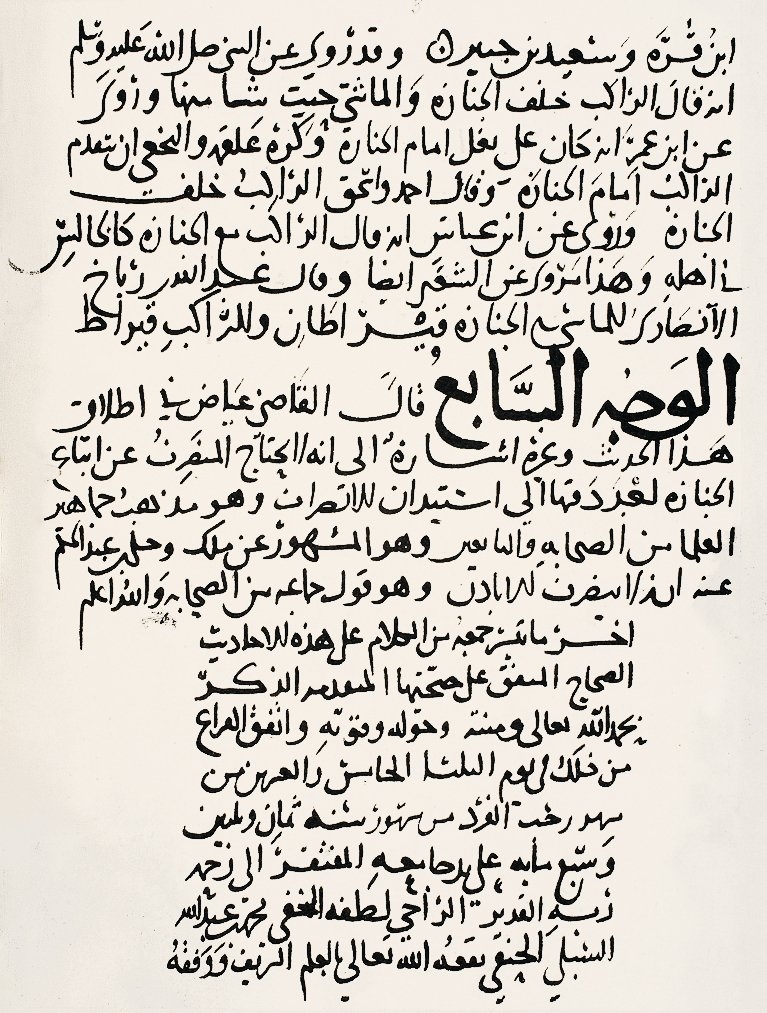 ابن قُرَّة وسعيد بن جبير وقد روي عن النبي صلى الله عليه وسلم
انه قال الراكب خلف الجنازه والماشي حيث شا منها وروي
عن ابن عمر انه كان على بغل امام الجنازة وكره علقمه والنخعي ان يتقدم
الراكب امام الجنازه وقال احمد واسحق الراكب خلف
الجنازه وروي عن ابن عباس انه قال الراكب مع الجنازه كالجالس
في اهله وهذا مروي عن الشعبي ايضا وقال عبد الله بن رباح
الأنصاري للماشي مع الجنازه قيراطان وللراكب قيراط
الوجه السابع قال القاضي عياض في اطلاق
هذا الحديث وغيره اشارة الى انه لا يحتاج المنصرف عن اتباع
الجنازه بعد دفنها الى استيذان للانصراف وهو مذهب جماهير
العلما من الصحابه والتابعين وهو المشهور عن ملك وحكى ابن عبد الحكم
عنه انه لا ينصرف الا باذن وهو قول جماعه من الصحابه والله اعلم
اخر ما تيسر جمعه من الكلام على هذه الاحاديث
الصحاح المتفق على صحتها المتقدمه الذكر
بحمد الله تعالى ومنته وحوله وقوته واتفق الفراغ
من ذلك في يوم الثلثا الخامس والعشرين من
شهر رجب الفرد من شهور سنه ثمان وثلثين
وسبع مأيه على يد جامعه المفتقر الى رحمه
ربه القدير الراجي لطفه الخفي محمد بن عبد الله
الشبلي الحنفي نفعه الله تعالى بالعلم الشريف ووفقه